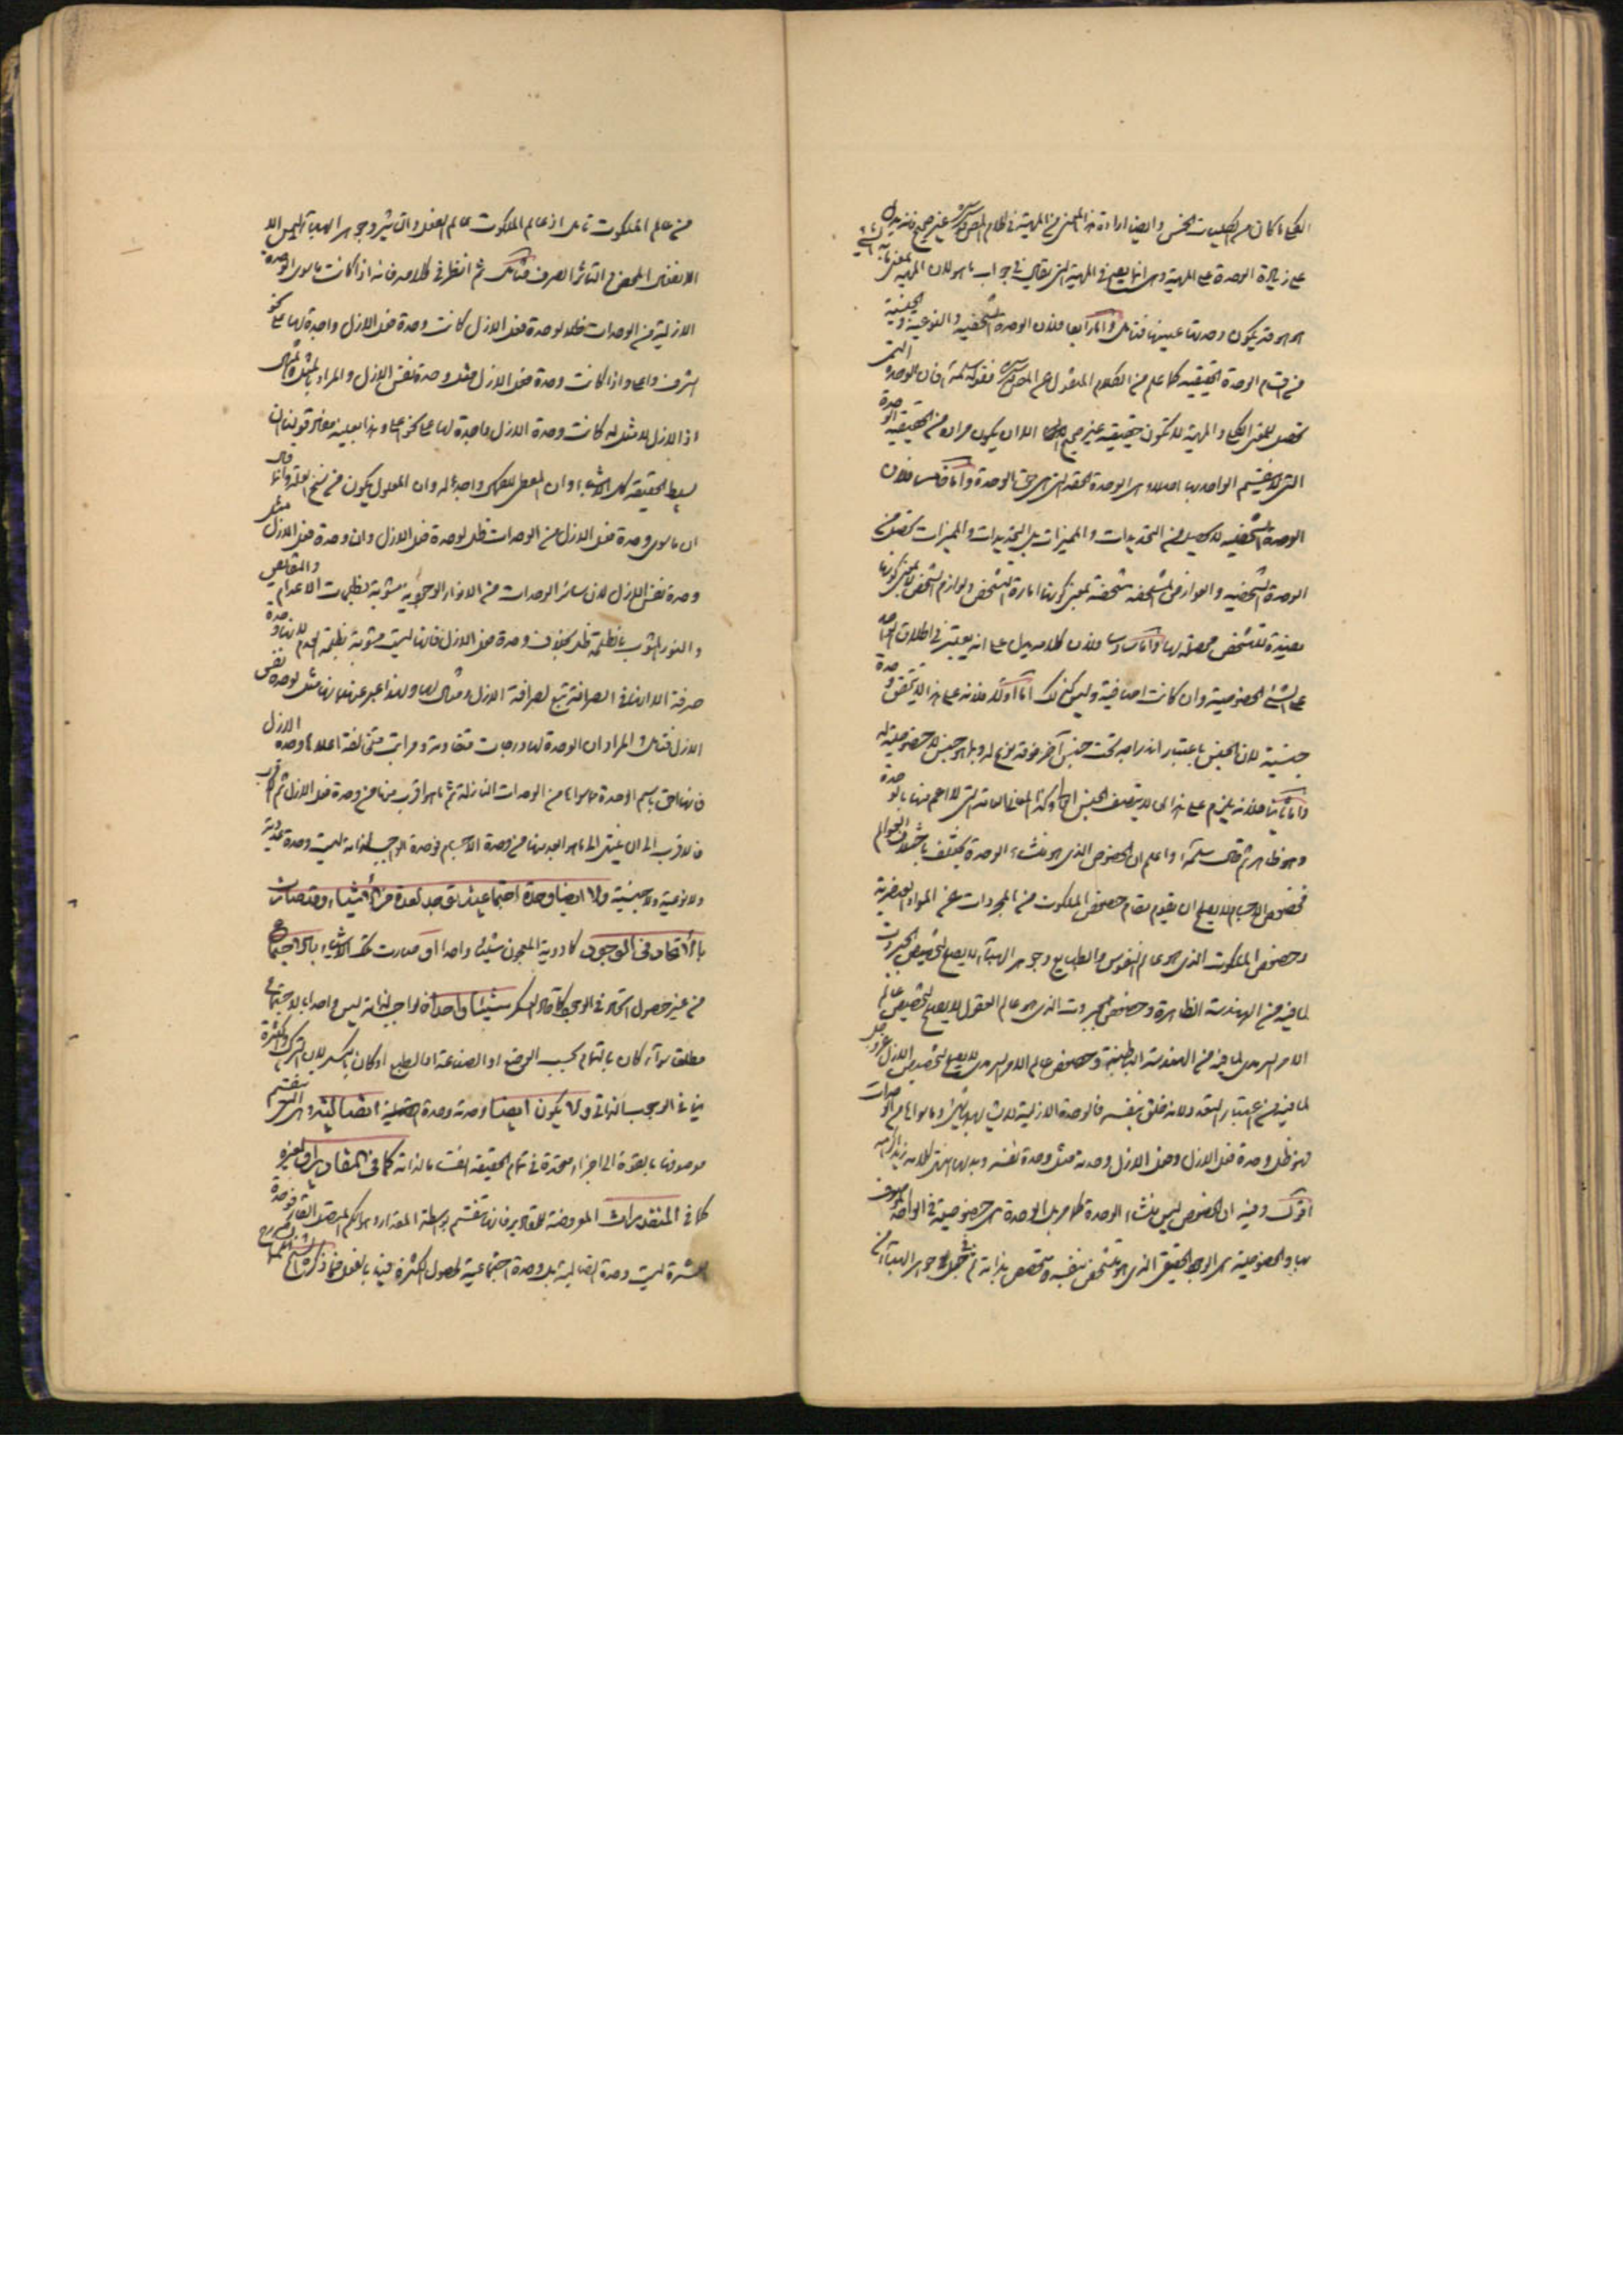 الكلي ما كان من الكليات الخمس وايضا ارادة هذا المعنى من المهية في كلام المص غير صحيح
على زيادة الوحدة على المهية وهي انما يصح في المهية التي يقال في جواب ما هو لان المهية بمعنى ما به الشيء
هو هو قد يكون وحدتها عينها فتامل واما رابعا فلان الوحدة الشخصية والنوعية والجنسية
من اقسام الوحدة الحقيقية كما علم من الكلام المنقول عن المص فقوله سلمه الله فان الوحدة التي
تحصل للمعنى الكلي والمهية لا تكون حقيقية غير صحيح الا ان يكون مراده من الحقيقية الوحدة
التي لا ينقسم الواحد بها اصلا وهي الوحدة الحقة التي هي حق الوحدة واما خامسا فلان
الوحدة الشخصية لا تحصل من التحديدات والمميزات بل التحديدات والمميزات تحصل من
الوحدة الشخصية والعوارض المشخصة مشخصة بمعنى كونها امارة التشخص ولوازم التشخص لا بمعنى كونها
مفيدة للتشخص محصلة لها واما سادسا فلان كلامه يدل على انه يعتبر في اطلاق الواحد
على الشئ الخصوصية وان كانت اضافية وليس كذلك اما اولا فلانه على هذا لا يتحقق وحدة
جنسية لان الجنس باعتبار اندراجه تحت جنس آخر فوقه نوع له وبما هو جنس لا خصوصية له
واما ثانيا فلانه يلزم على هذا ان لا يتصف الجنس العالي وكذا المعاني العامة التي لا اعم منها بالوحدة
وهو ظاهر ثم قال سلمه الله واعلم ان الخصوص الذي هو منشاء الوحدة يختلف باختلاف العوالم
فخصوص الاجسام لا يصلح ان يقوم مقام خصوص الملكوت من المجردات عن المواد العنصرية
وخصوص الملكوت الذي هو عالم النفوس والطبايع وجوهر الهباء لا يصلح لتخصيص الجبروت
لما فيه من الهندسة الظاهرة وخصوص الجبروت الذي هو عالم العقول لا يصلح لتخصيص عالم
الامر السرمدي لما فيه من الهندسة الباطنة وخصوص عالم الامر السرمدي لا يصلح لتخصيص الازل عز وجل
لما فيه من اعتبار التعدد لانه خلق بنفسه فالوحدة الازلية لا يشابهها شئ وما سواها من الوحدات
فهو ظل وحدة فعل الازل وفعل الازل وحدته مثل وحدة نفسه وبدلها انتهى كلامه زيد اكرامه
اقول وفيه ان الخصوص ليس منشاء الوحدة كما مر بل الوحدة هي خصوصية في الواحد الموصوف
بها والخصوصية هي الوجود الحقيقي الذي هو متشخص بنفسه ومتخصص بذاته ثم في جعل جوهر الهباء من
من عالم الملكوت تامل اذ عالم الملكوت عالم الفعل والتاثير وجوهر الهباء ليس الا
الانفعال المحض والتاثر الصرف فتامل ثم انظر في كلامه فانه اذا كانت ما سوى الوحدة
الازلية من الوحدات ظلا لوحدة فعل الازل كانت وحدة فعل الازل واجدة لها على نحو
اشرف واعلى واذا كانت وحدة فعل الازل مثل وحدة نفس الازل والمراد بالمثل المثال
اذ الازل لا مثل له كانت وحدة الازل واجدة لها على نحو اعلى وهذا بعينه معنى قولنا ان
بسيط الحقيقة كل الاشياء وان المعطي للكمال واجد له وان المعلول يكون من سنخ العلة وانما قال
ان ما سوى وحدة فعل الازل من الوحدات ظل لوحدة فعل الازل وان وحدة فعل الازل مثل
وحدة نفس الازل لان سائر الوحدات من الانوار الوجودية مشوبة بظلمات الاعدام والنقايص
والنور المشوب بالظلمة ظل بخلاف وحدة فعل الازل فانها ليست مشوبة بظلمة العدم لانها وحدة
صرفة الا انها في الصرافة تتبع لصرافة الازل ومثال لها ولهذا عبر عنها بانها مثل لوحدة نفس
الازل فتامل والمراد ان الوحدة لها درجات متفاوتة ومراتب مختلفة اعلاها وحدة الازل
فانها احق باسم الوحدة مما سواها من الوحدات النازلة ثم ما هو اقرب منها من وحدة فعل الازل ثم الاقرب
فالاقرب الى ان ينتهي الى ما هو ابعد منها من وحدة الاجسام فوحدة الواجب لذاته ليست وحدة عددية
ولا نوعية ولا جنسية ولا ايضا وحدة اجتماعية توجد لعدة من الأشياء وقد صارت
بالأتحاد في الوجود كادوية المعجون شيئا واحدا او صارت تلك الاشياء بالاجتماع
من غير حصول اتحاد في الوجود كافراد العسكر شيئا واحدا فالواجب لذاته ليس واحدا بالاجتماع
مطلقا سواء كان بالتمام بحسب الوضع او الصناعة او الطبع او كان بالكسر لان التركب والكثرة
ينافي الوجوب الذاتي ولا يكون ايضا وحدته وحدة اتصالية وهي التي ينقسم
موصوفها بالقوة الى اجزاء متحدة في تمام الحقيقة انقساما لذاته كما في المقادير او لغيره
كما في المتقدرات المعروضة للمقادير فانها تنقسم بواسطة المقدار وهو الكم المتصل القار فوحدة
العشرة ليست وحدة اتصالية بل وحدة اجتماعية لحصول الكثرة فيها بالفعل فما ذكره الشارح